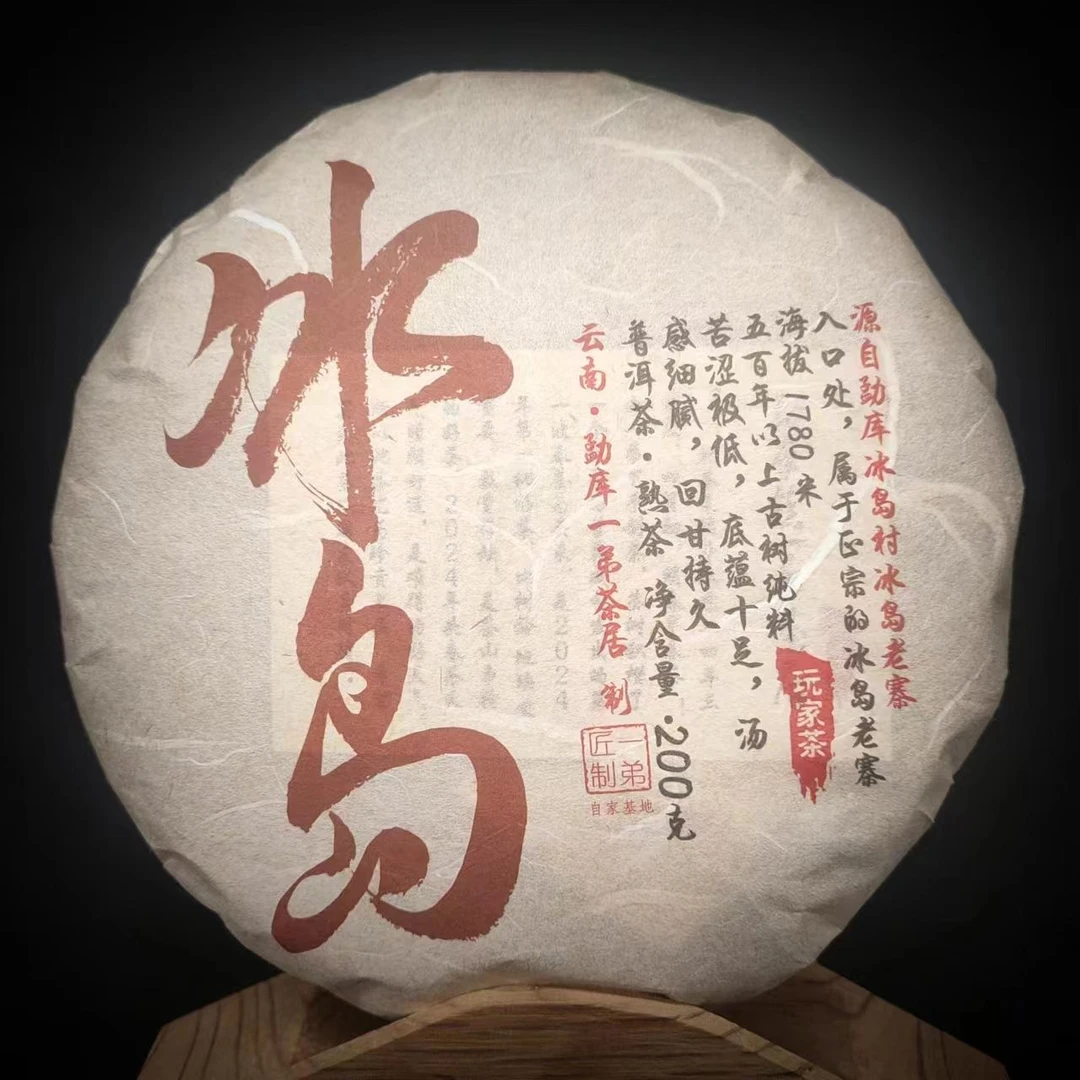 冰岛
源自勐库冰岛村冰岛老寨
入口处，属于正宗的冰岛老寨
海拔1780米
五百年以上古树纯料
苦涩极低，底蕴十足，汤
感细腻，回甘持久
普洱茶·熟茶 净含量·200克
云南·勐库一弟茶居 制
玩家茶
一弟
匠制
自家基地